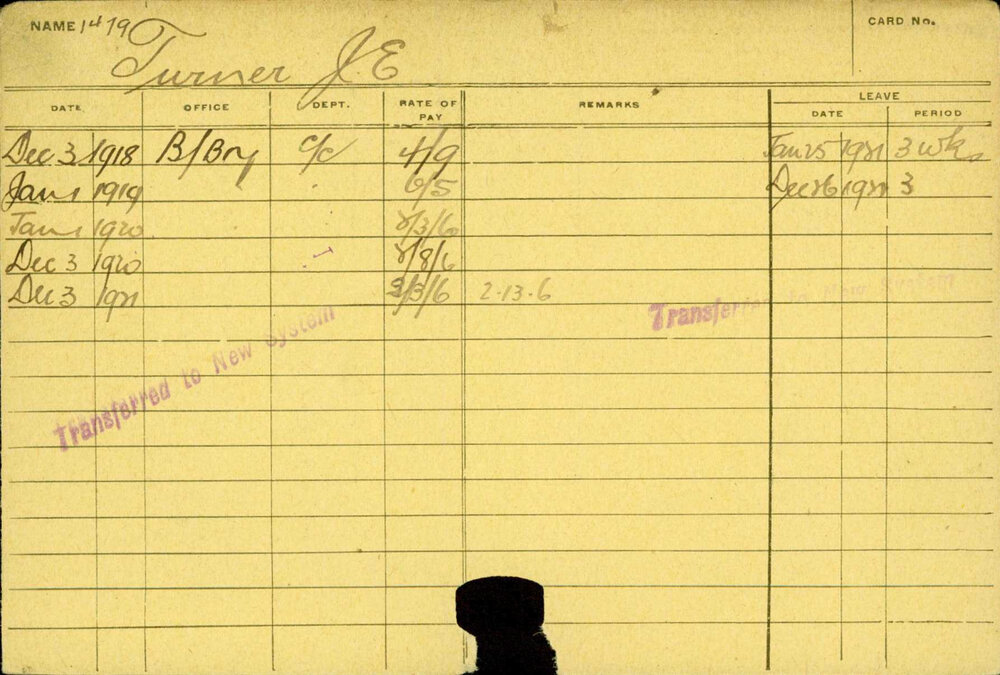 NAME 1479 Turner J.E CARD No.
DATE OFFICE DEPT. RATE OF PAY REMARKS LEAVE
DATE PERIOD
Dec 3 1918 B/Boy C/C 4/9 Jan 25 1921 3 wks
Jan 1 1919 6/5 Dec 26 1921 3
Jan 1 1920 2/3/6
Dec 3 1920 2/8/6
Dec 3 1921 3/3/6 2-13-6
Transferred to New System
Transferred to New System